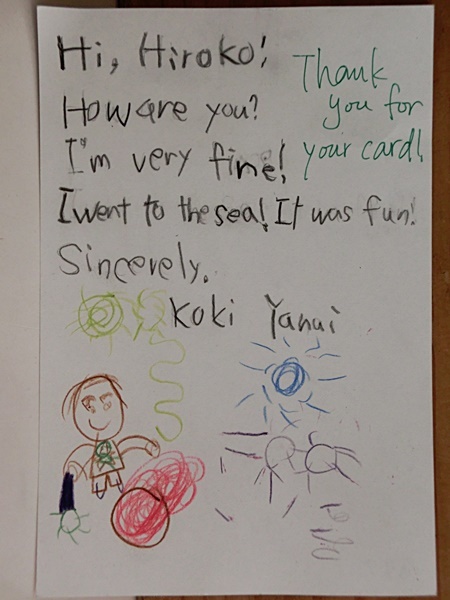 Hi, Hiroko!
How are you?
I'm very fine!
I went to the sea! It was fun!
Sincerely.
Koki Yanai
Thank
you for
your card!